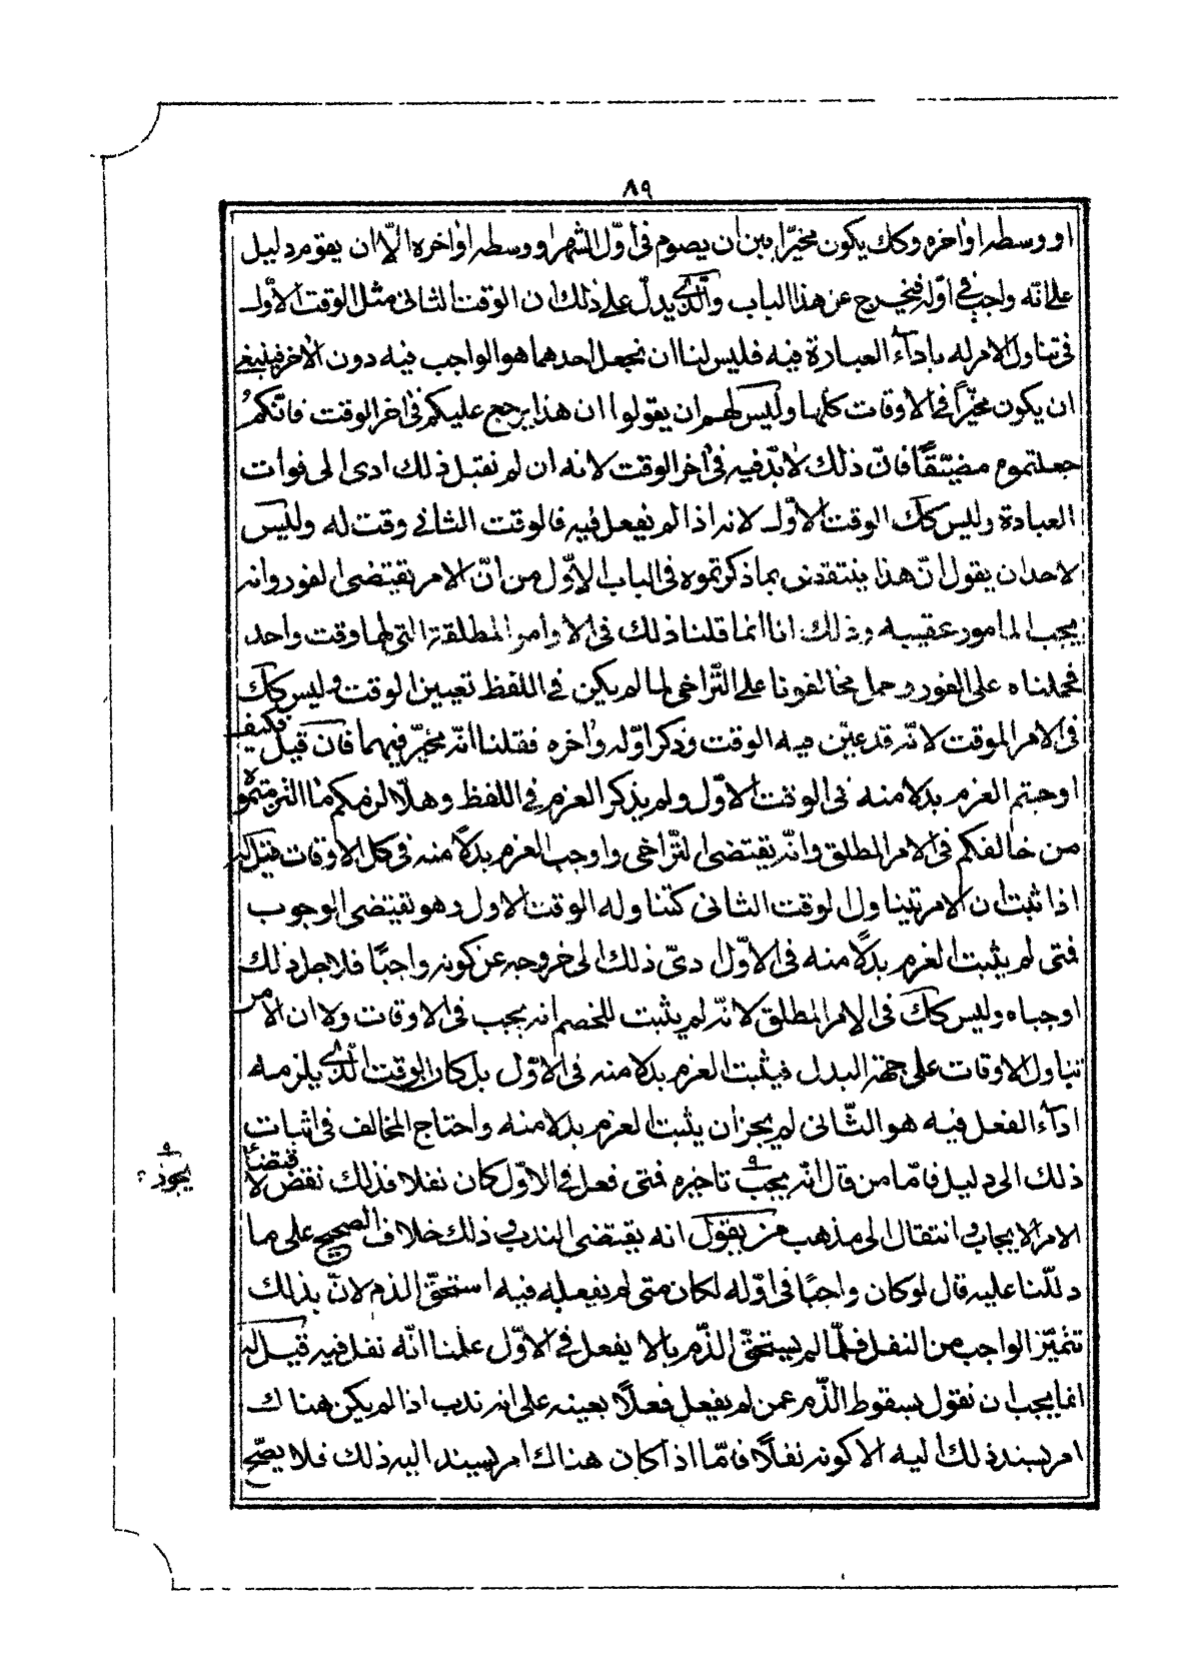 ٨٩
او وسطه او اخره وكك يكون مخيرا بين ان يصوم فى اوّل الشهر او وسطه او اخره الّا ان يقوم دليل
على انّه واجب فى اوّله فيخرج عن هذا الباب والّذى يدلّ على ذلك ان الوقت الثانى مثل الوقت الاوّل
فى تناول الامر له باداء العبادة فيه فليس لنا ان نجعل احدهما هو الواجب فيه دون الاخر فينبغى
ان يكون مخيّراً فى الاوقات كلها وليس لهم ان يقولوا ان هذا يرجع عليكم فى اخر الوقت فانّكم
جعلتموه مضيّقًا فانّ ذلك لا بدّ فيه فى اخر الوقت لانه ان لم نقبل ذلك ادى الى فوات
العبادة وليس كك الوقت الاوّل لانه اذا لم يفعل فيه فالوقت الثانى وقت له وليس
لاحد ان يقول انّ هذا ينتقض بما ذكرتموه فى الباب الاوّل من انّ الامر يقتضى الفور وانه
يجب المامور عقيبه وذلك انا انما قلنا ذلك فى الاوامر المطلقة التى لها وقت واحد
فحملناه على الفور وحمل مخالفونا على التّراخى لما لم يكن فى اللفظ تعيين الوقت وليس كك
فى الامر الموقت لانّه قد عيّن فيه الوقت وذكر اوّله واخره فقلنا انّه مخيّر فيهما فان قيل فكيف
اوجبتم العزم بدلا منه فى الوقت الاوّل ولم يذكر العزم فى اللفظ وهلّا لزمكم ما الزمتموه
من خالفكم فى الامر المطلق وانّه يقتضى التّراخى واوجب العزم بدلاً منه فى كل الاوقات قيل له
اذا ثبت ان الامر يتناول الوقت الثانى كتناوله الوقت الاول وهو يقتضى الوجوب
فمتى لم يثبت العزم بدلًا منه فى الاوّل ادىّ ذلك الى خروجه عن كونه واجبًا فلاجل ذلك
اوجباه وليس كك فى الامر المطلق لانّه لم يثبت للخصم انه يجب فى الاوقات ولا ان الامر
تناول الاوقات على جهة البدل فيثبت العزم بدلا منه فى الاوّل بل كان الوقت الّذى يلزمه
اداء الفعل فيه هو الثّانى لم يجز ان يثبت العزم بدلا منه واحتاج المخالف فى اثبات
ذلك الى دليل فامّا من قال انّه يجب تاخيره فمتى فعل فى الاوّل كان نفلا فذلك نقض لاقتضاء
الامر الايجاب وانتقال الى مذهب من يقول انه يقتضى الندب وذلك خلاف الصحيح على ما
دلّلنا عليه قال لو كان واجبًا فى اوّله لكان متى لم يفعله فيه استحقّ الذم لانّ بذلك
تتميّز الواجب من النفل فلمّا لم يستحقّ الذّم بالا يفعل فى الاوّل علمنا انّه نفل فيه قيل له
انما يجب ان نقول بسقوط الذّم عمن لم يفعل فعلًا بعينه على انه ندب اذا لم يكن هناك
امر يسند ذلك اليه الا كونه نفلًا فامّا اذا كان هناك امر يسند اليه ذلك فلا يصّح
يجوز ؟